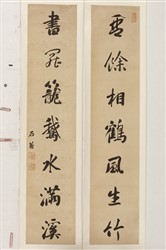 餘相鶴風生竹
書罷籠鵝水滿溪
石菴